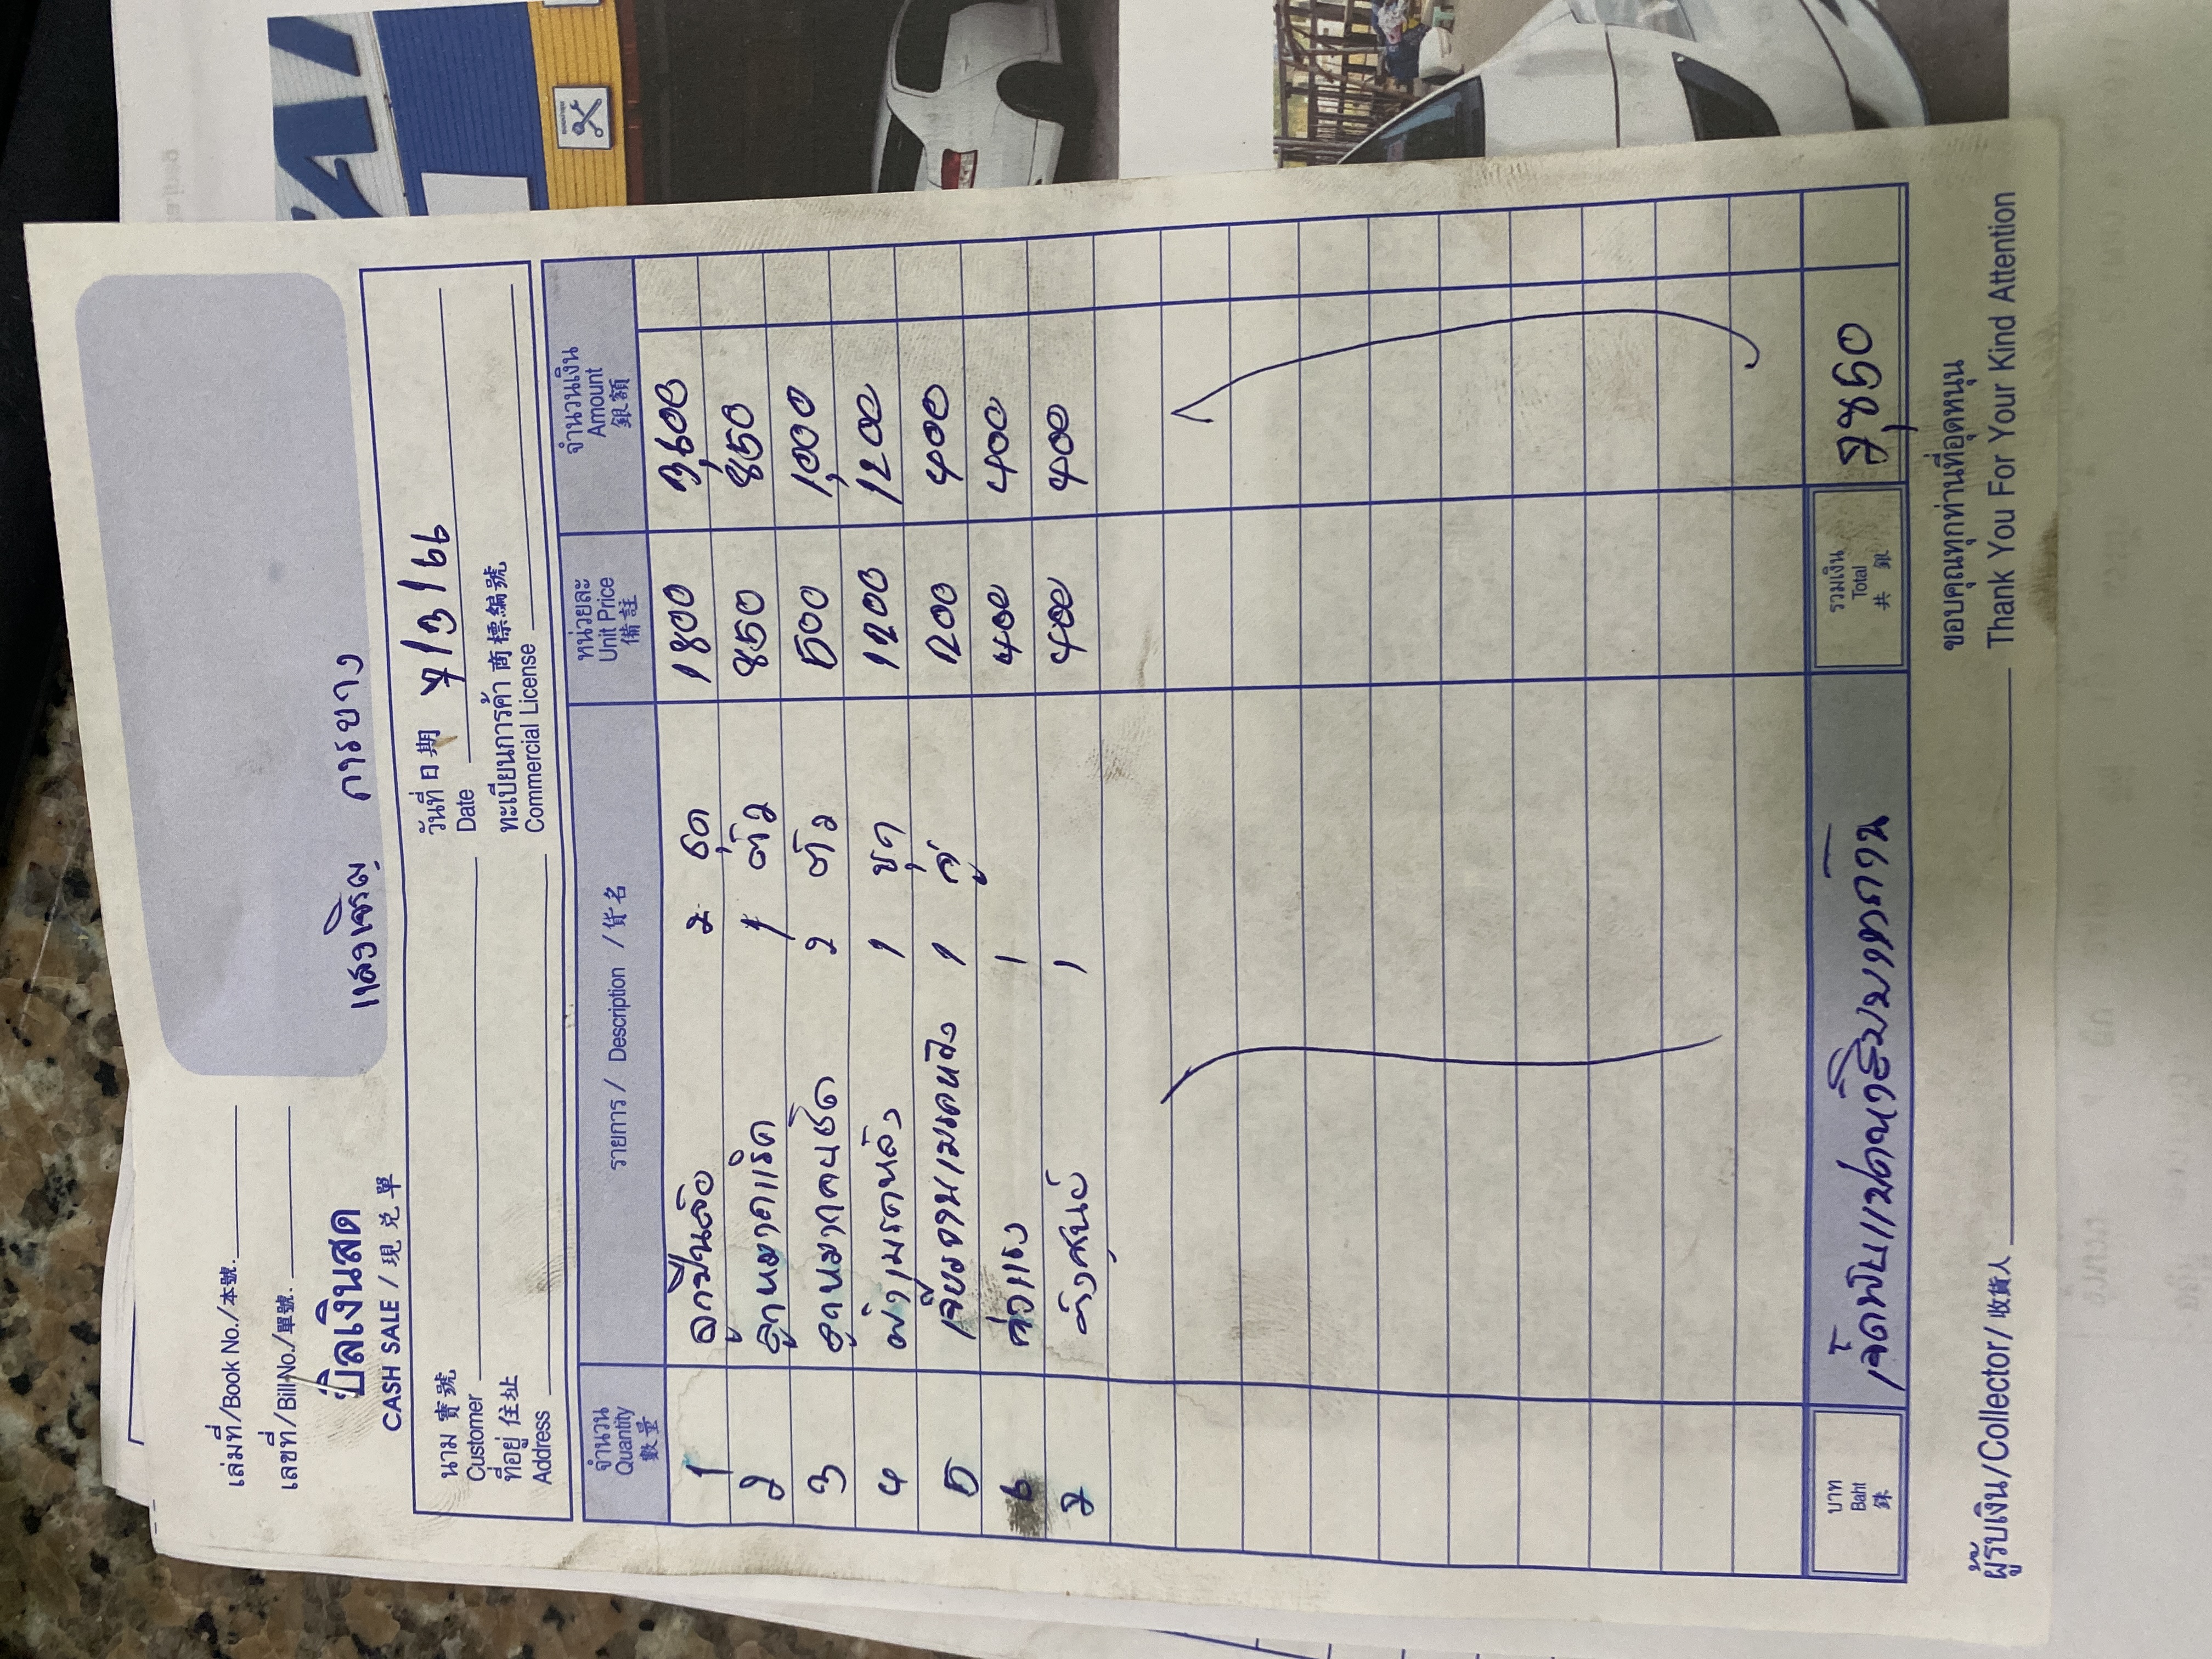 เล่มที่/Book No./本號.
เลขที่/Bill No./單號.
บิลเงินสด
CASH SALE / 現 兑 單
แสงเจริญ การยาง
นาม 寶 號
Customer
วันที่ 日 期 7/3/66
Date
ที่อยู่ 住 址
Address
ทะเบียนการค้า 商 標 編 號
Commercial License
จำนวน Quantity 數 量 รายการ / Description / 貨 名 หน่วยละ Unit Price 備 註 จำนวนเงิน Amount 銀 額
1 ลูกปืนล้อ 2 ชุด 1800 3,600
2 ลูกหมากแร็ค 1 ตัว 850 850
3 ลูกหมากคันชัก 2 ตัว 500 1,000
4 ผ้าเบรคหลัง 1 ชุด 1200 1200
5 เจียรจานเบรคหลัง 1 คู่ 1200 400
6 ค่าแรง 1 400 400
7 ตั้งศูนย์ 1 400 400
บาท Baht 銖 เจ็ดพันแปดร้อยห้าสิบบาทถ้วน รวมเงิน Total 共 銀 7,850
ขอบคุณทุกท่านที่อุดหนุน
ผู้รับเงิน/Collector/收貨人 Thank You For Your Kind Attention